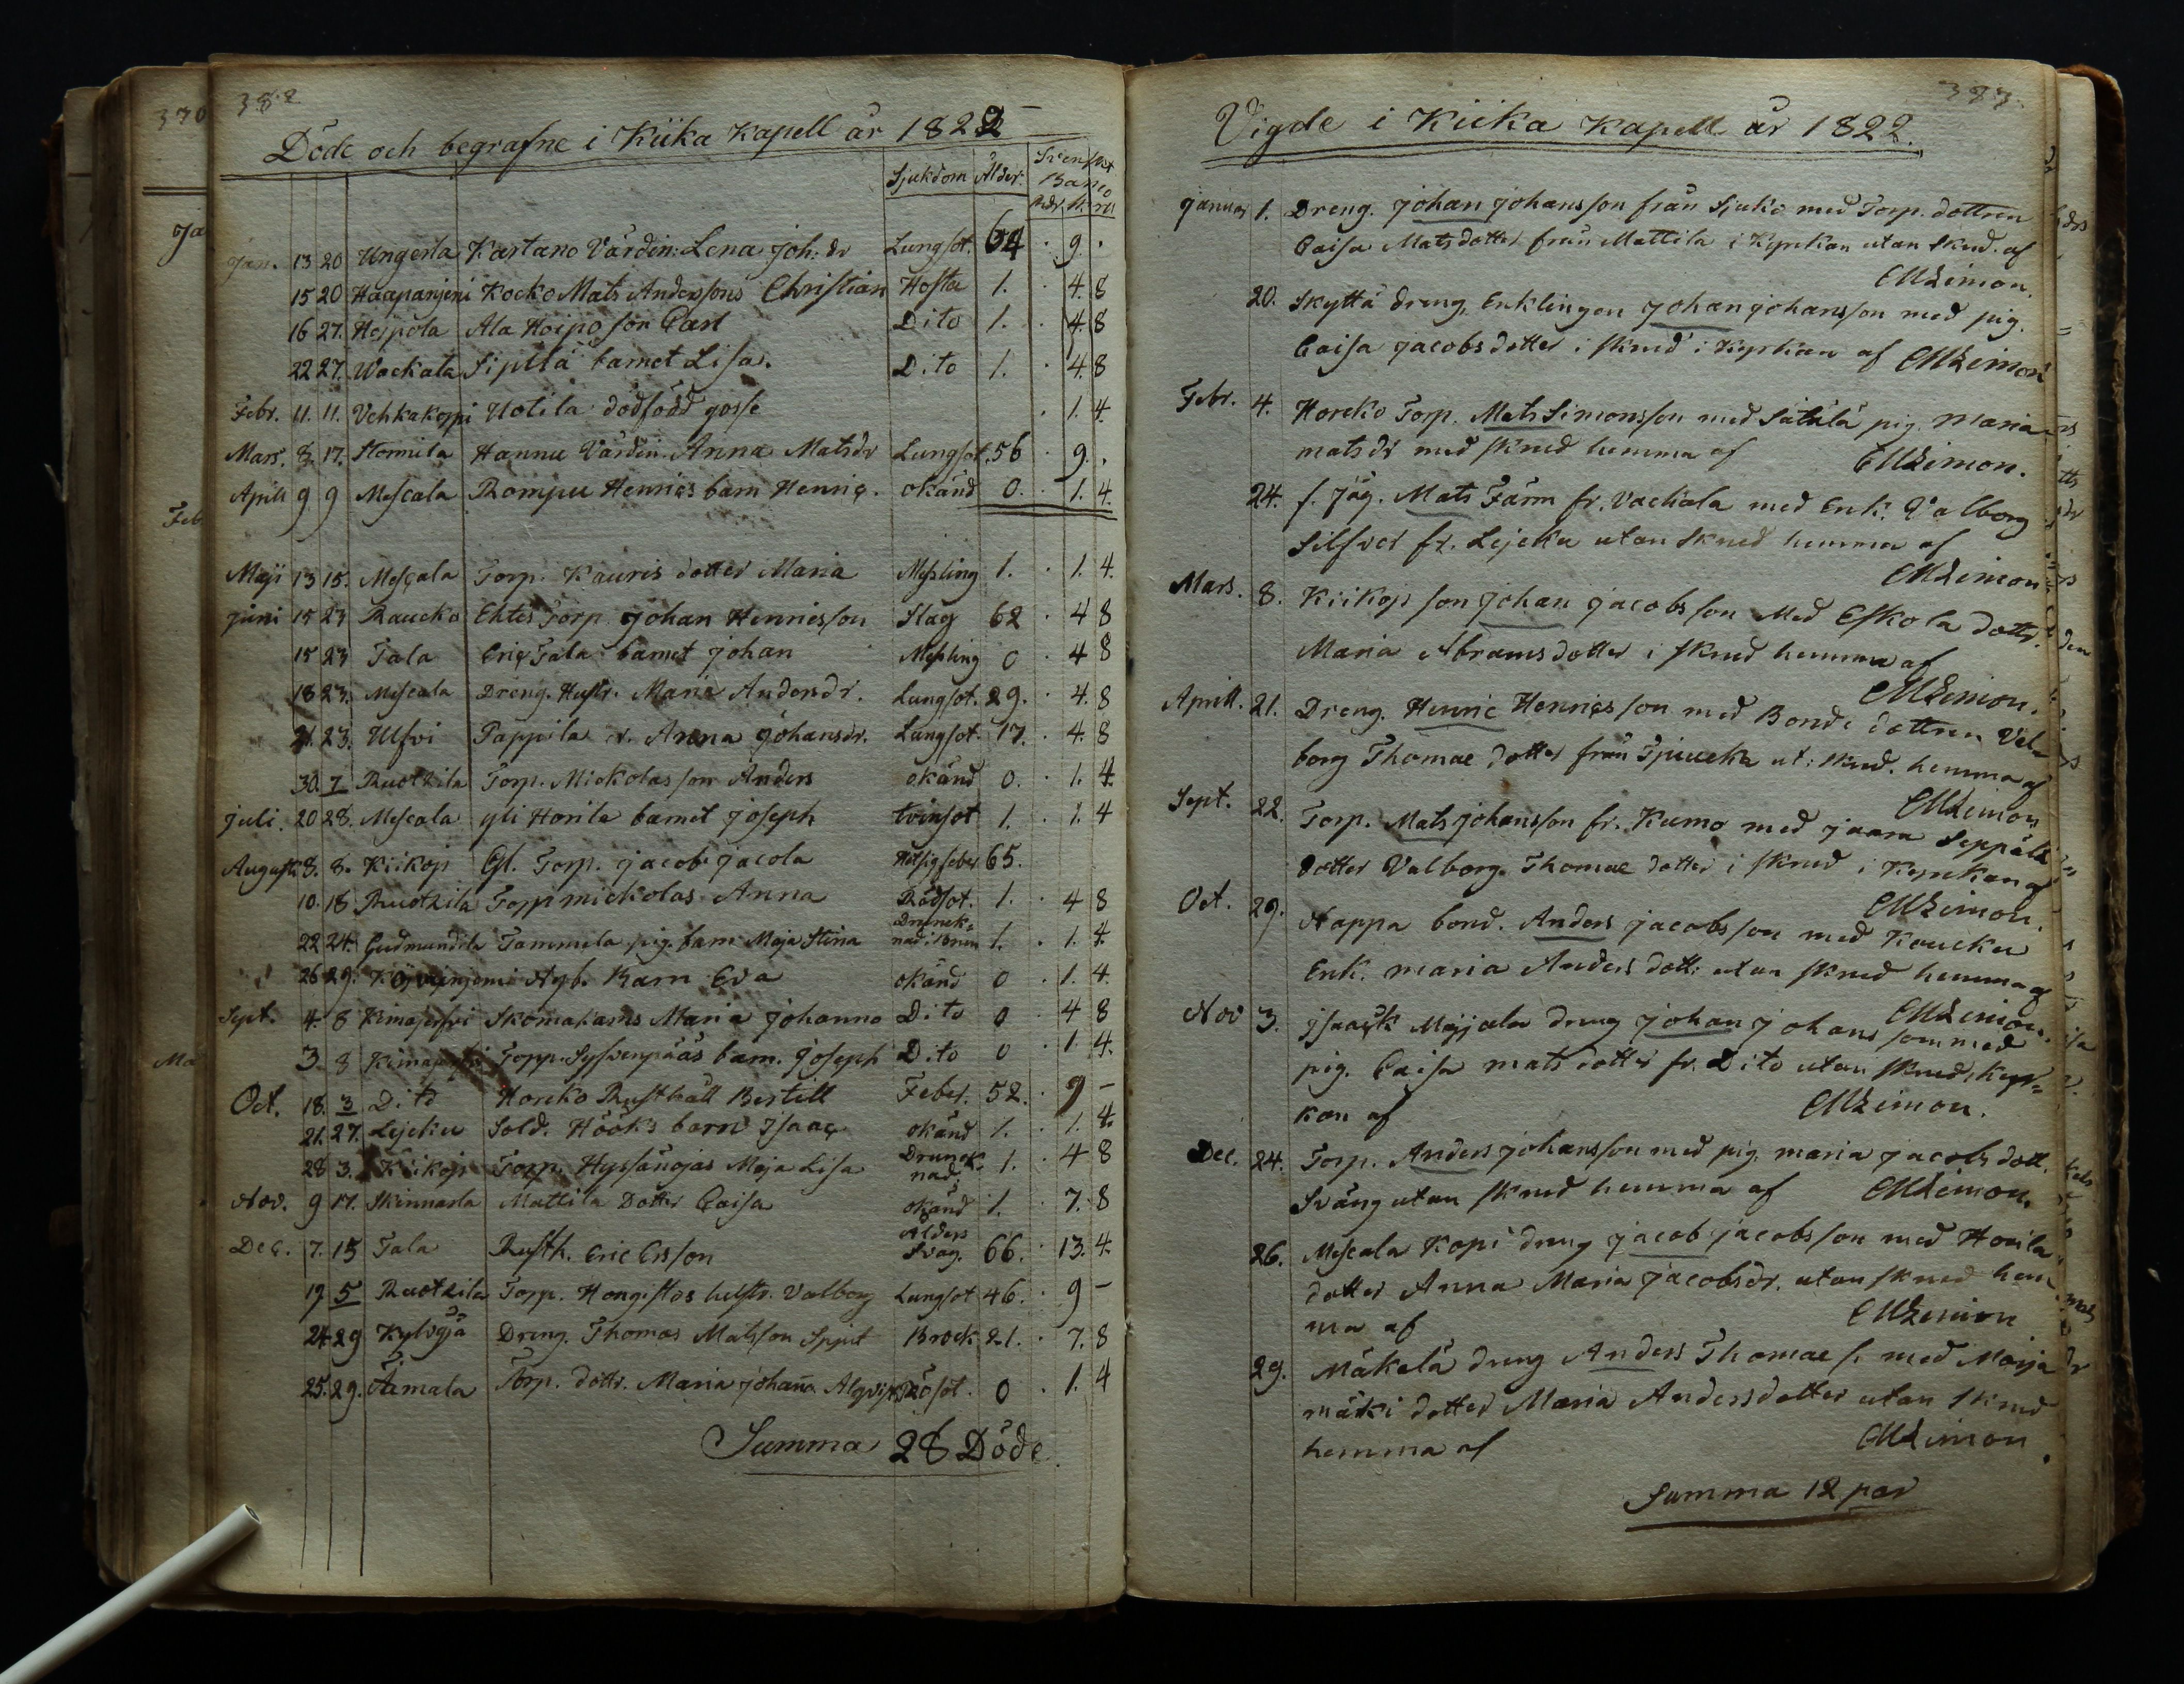 382
Döde och begrafne i Kiika Kapell år 1822
Sjukdom Ålder. Svenska Banco
Rdr. s. rst
Jan. 13 20 Ungerla Kartano Värdin: Lena Joh: dr Lungsot. 64 . 9. .
15 20 Haapanjemi Kocko Mats Anderssons Christian Hosta 1. . 4. 8
16 27. Hoipola Ala Hoipo son Carl Dito 1. . 4. 8
22 27. Wackala Sipilä barnet Lisa. Dito 1. . 4. 8
Febr. 11. 11. Vehkakoppi Uotila dödfödd gosse . 1. 4.
Mars. 8. 17. Stormila Hannu Värdin Anna Matsdr Lungsot. 56 . 9. .
Aprill 9 9 Mescala Rompu Henrics barn Henric. okänd 0. . 1. 4.
Maji 13 15. Mescala Torp. Kauris dotter Maria Messling 1. . 1. 4.
Juni 15 23 Raucko Ehtes Torp. Johan Henricsson Slag 62 . 4 8
15 23 Tala Eric Tala barnet Johan Messling 0 . 4 8
18 23. Mescala Dreng. Hustr. Maria Andersdr. Lungsot. 29. . 4. 8
21. 23. Ulfvi Pappila d. Anna Johansdr. Lungsot. 17. . 4. 8
30. 7 Ruotzila Torp. Mickolas son Anders okänd 0. . 1. 4.
Juli. 20 28. Mescala yli Horila barnet Joseph tvinsot 1. . 1. 4
August: 8. 8. Kiikoj Gl. Torp. Jacob Jacola Hetsig feber 65.
10. 18 Ruotzila Torpp mickolas Anna Rödsot. 1. . 4 8
22 24. Gudmundila Tammela pig. barn Maja Stina Drunck-
nad i Brun 1. . 1. 4.
26 29. Barn Eva okänd 0 . 1. 4.
Sept. 4. 8 Skomakares Maria Johanna Dito 0 . 4 8
3 8 Torpp. barn. Joseph Dito 0 . 1. 4.
Oct. 18. 3 Dito Horcko Rusthåll Bertill Feber. 52. . 9 -
21. 27. Lejeku Sold. Hööks barn Isaac okänd 1. . 1. 4.
28 3. Kiikoj Torp. Hyssänojas Maja Lisa Drunck-
nad. 1. . 4 8
Nov. 9 17. Skinnarla Mattila Dotter Caisa okänd 1. . 7. 8
Dec. 7. 15 Tala Rusth. Eric Ersson Ålders
svag. 66. . 13. 4.
19 5 Ruotzila Torp. Hongistos hustr. Valborg Lungsot 46. . 9 -
24 29 Kylvyjä Dreng. Thomas Matsson Spjut Brock 21. . 7. 8
25. 29. Äimala Torp. dottr. Maria Johana Rödsot. 0 . 1. 4
Summa 28 Döde.
383.
Vigde i Kiika Kapell år 1822.
Januar 1. Dreng. Johan Johansson från Sjukö med Torp. dottren
Caisa Matsdotter från Mattila i Kyrckan utan skrud. af
MZeimon.
20. Skyttä dreng, Enklingen Johan Johansson med pig.
Caisa Jacobsdotter i skrud i Kyrkan af MZeimon
Febr. 4. Horcko Torp. Mats Simonsson med Sätälä pig. Maria
matsdr med skrud hemma af MZeimon.
24. f. Jäg. Mats Färm fr. Vackala med Enk. Valborg
Silfver fr. Lejeku utan skrud hemma af
MZeimon
Mars. 8. Kiikojs son Johan Jacobsson Med Eskola dottr.
Maria Abramsdotter i skrud hemma af
MZeimon.
Aprill. 21. Dreng. Henric Henricsson med Bonde dottren Val
borg Thomae dotter från ut: skrud. hemma af
MZeimon
Sept. 22. Torp. Mats Johansson fr. Kumo med Jaara Seppälä
dotter Valborg Thomae dotter i skrud i Kyrckan af
MZeimon.
Oct. 29. Nappa bond. Anders Jacobsson med Koucku
Enk. maria Anders dott: utan skrud hemma af
MZeimon.
Nov 3. dreng Johan Johansson med
pig. Caisa mats dotter fr. Dito utan skrud i Kyr-
kan af MZeimon.
Dec. 24. Torp. Anders Johansson med pig. maria Jacobs dott.
Sväng utan skrud hemma af MZeimon.
26. Mescala Kopi dreng Jacob Jacobsson med Horila
dotter Anna Maria Jacobsdr. utan skrud hem
ma af MZeimon
29. Mäkelä dreng Anders Thomae s. med Maija
mäki dotter Maria Andersdotter utan skrud
hemma af MZeimon.
Summa 12 par